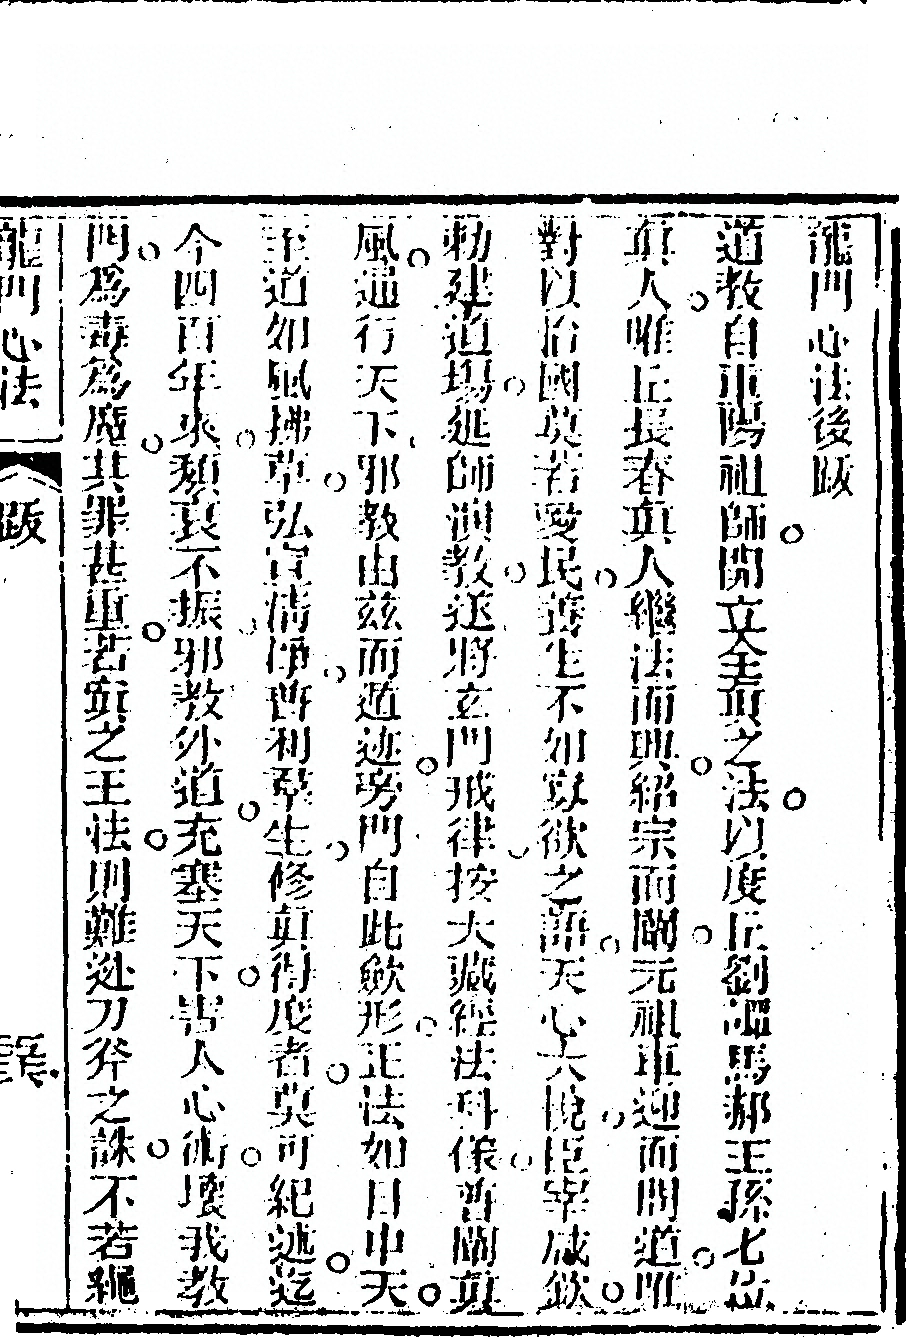 龍門心法後跋
道教自重陽祖師開立全真之法以度丘劉譚馬郝王孫七位
真人唯丘長春真人繼法而興紹宗而闡元祖車迎而問道唯
對以治國莫若愛民養生不如寡欲之語天心大悅臣宰咸欽
勅建道場延師演教遂將玄門戒律按大藏經法科儀普闡真
風通行天下邪教由茲而遁迹旁門自此斂形正法如日中天
至道如風拂草弘宣清淨普利羣生修真得度者莫可紀述迄
今四百年來頹衰不振邪教外道充塞天下害人心術壞我教
門為毒為魔其罪甚重若寘之王法則難逃刀斧之誅不若繩
龍門心法
跋